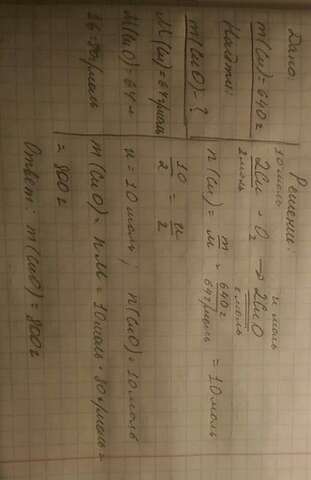 Дано:
m(Cu)=640г
Найти:
m(CuO)-?
M(Cu)=64г/моль
M(CuO)=64+
16=80г/моль
Решение:
10моль и моль
2Cu + O₂ → 2CuO
2моль 2моль
n(Cu) = m/M = 640г/64г/моль = 10моль
10/2 = и/2
и=10моль; n(CuO)=10моль
m(CuO)=nM=10моль·80г/моль=
=800г
Ответ: m(CuO)=800г